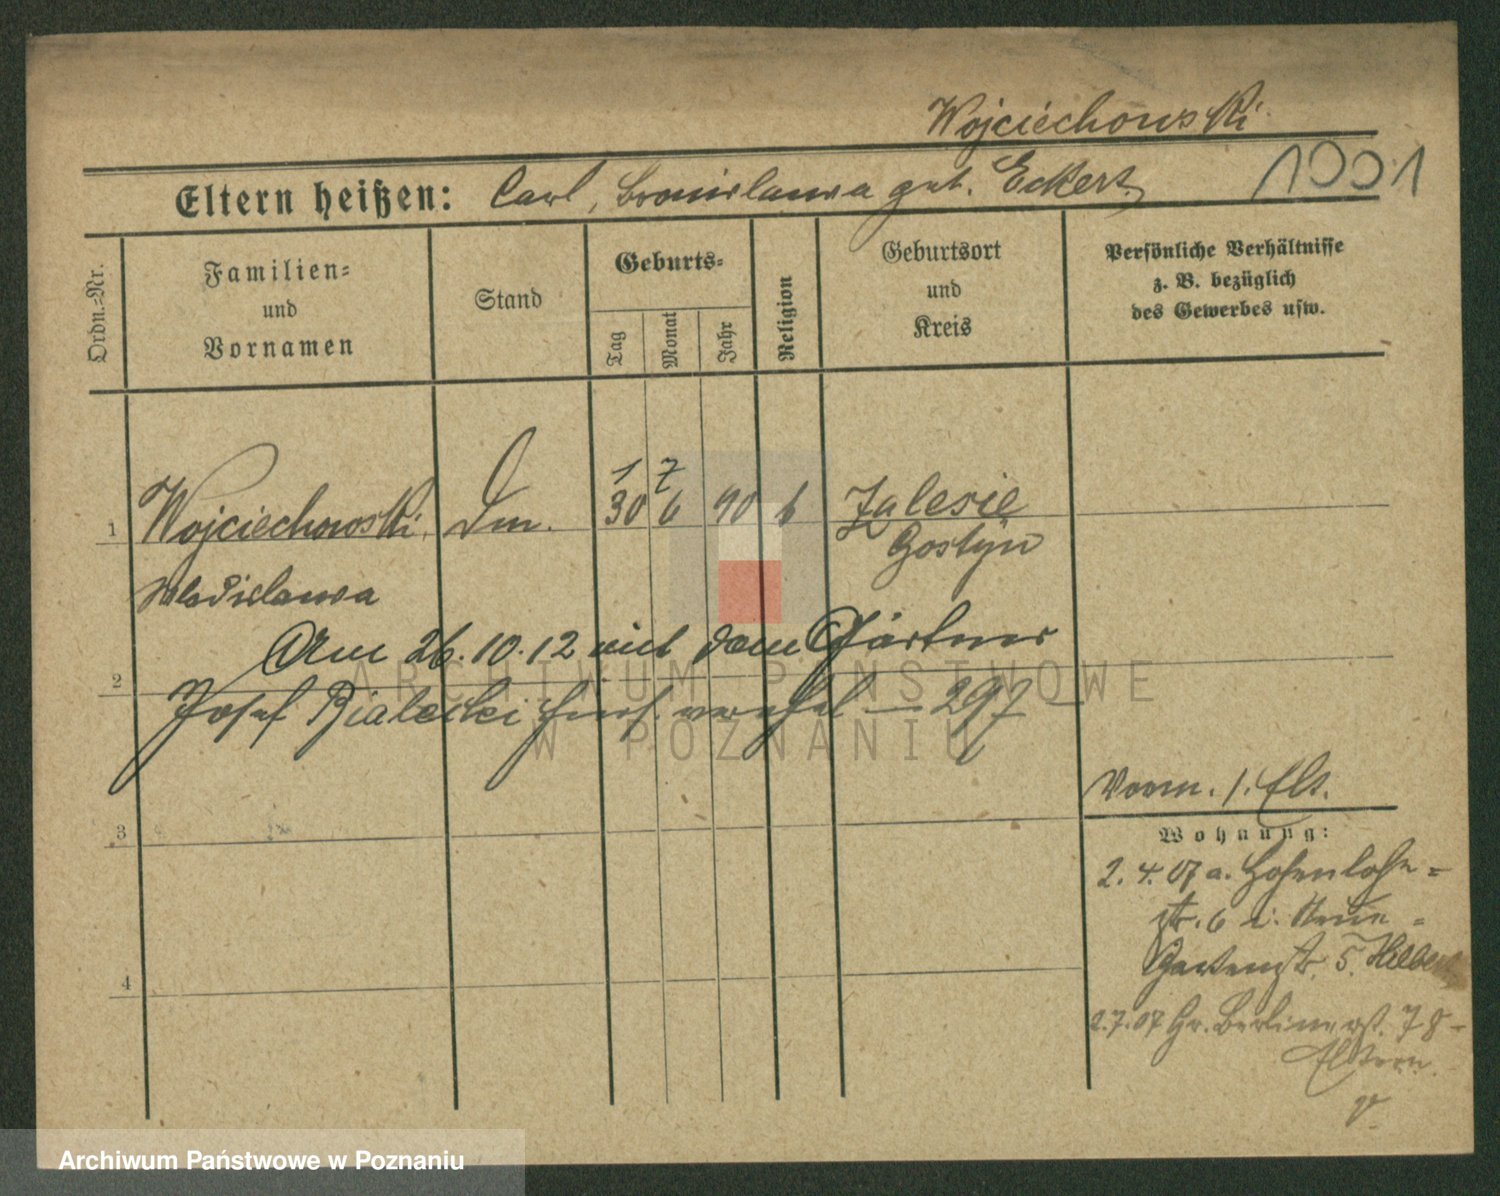 Wojciechowski
1991
Eltern heißen: Carl, Bronislawa geb. Eckert
Ordn.=Nr.
Familien=
und
Vornamen
Stand
Geburts=
Tag
Monat
Jahr
Religion
Geburtsort
und
Kreis
Persönliche Verhältnisse
z. B. bezüglich
des Gewerbes usw.
1 7
1 Wojciechowski, 30 6 90 k Zalesie
Gostyn
Wladislawa
Am 26.10.12 mit dem Gärtner
2
Josef Bialecki hies. verehel — 297 —
Vorm. 1. Elt.
3
Wohnung:
2. 4. 07 a. Hohenlohe=
str. 6 n. Neue=
Gartenstr. 5.
4
2.7.07 Gr. Berlinerst. 78-
Eltern.
ARCHIWUM PAŃSTWOWE
W POZNANIU
Archiwum Państwowe w Poznaniu